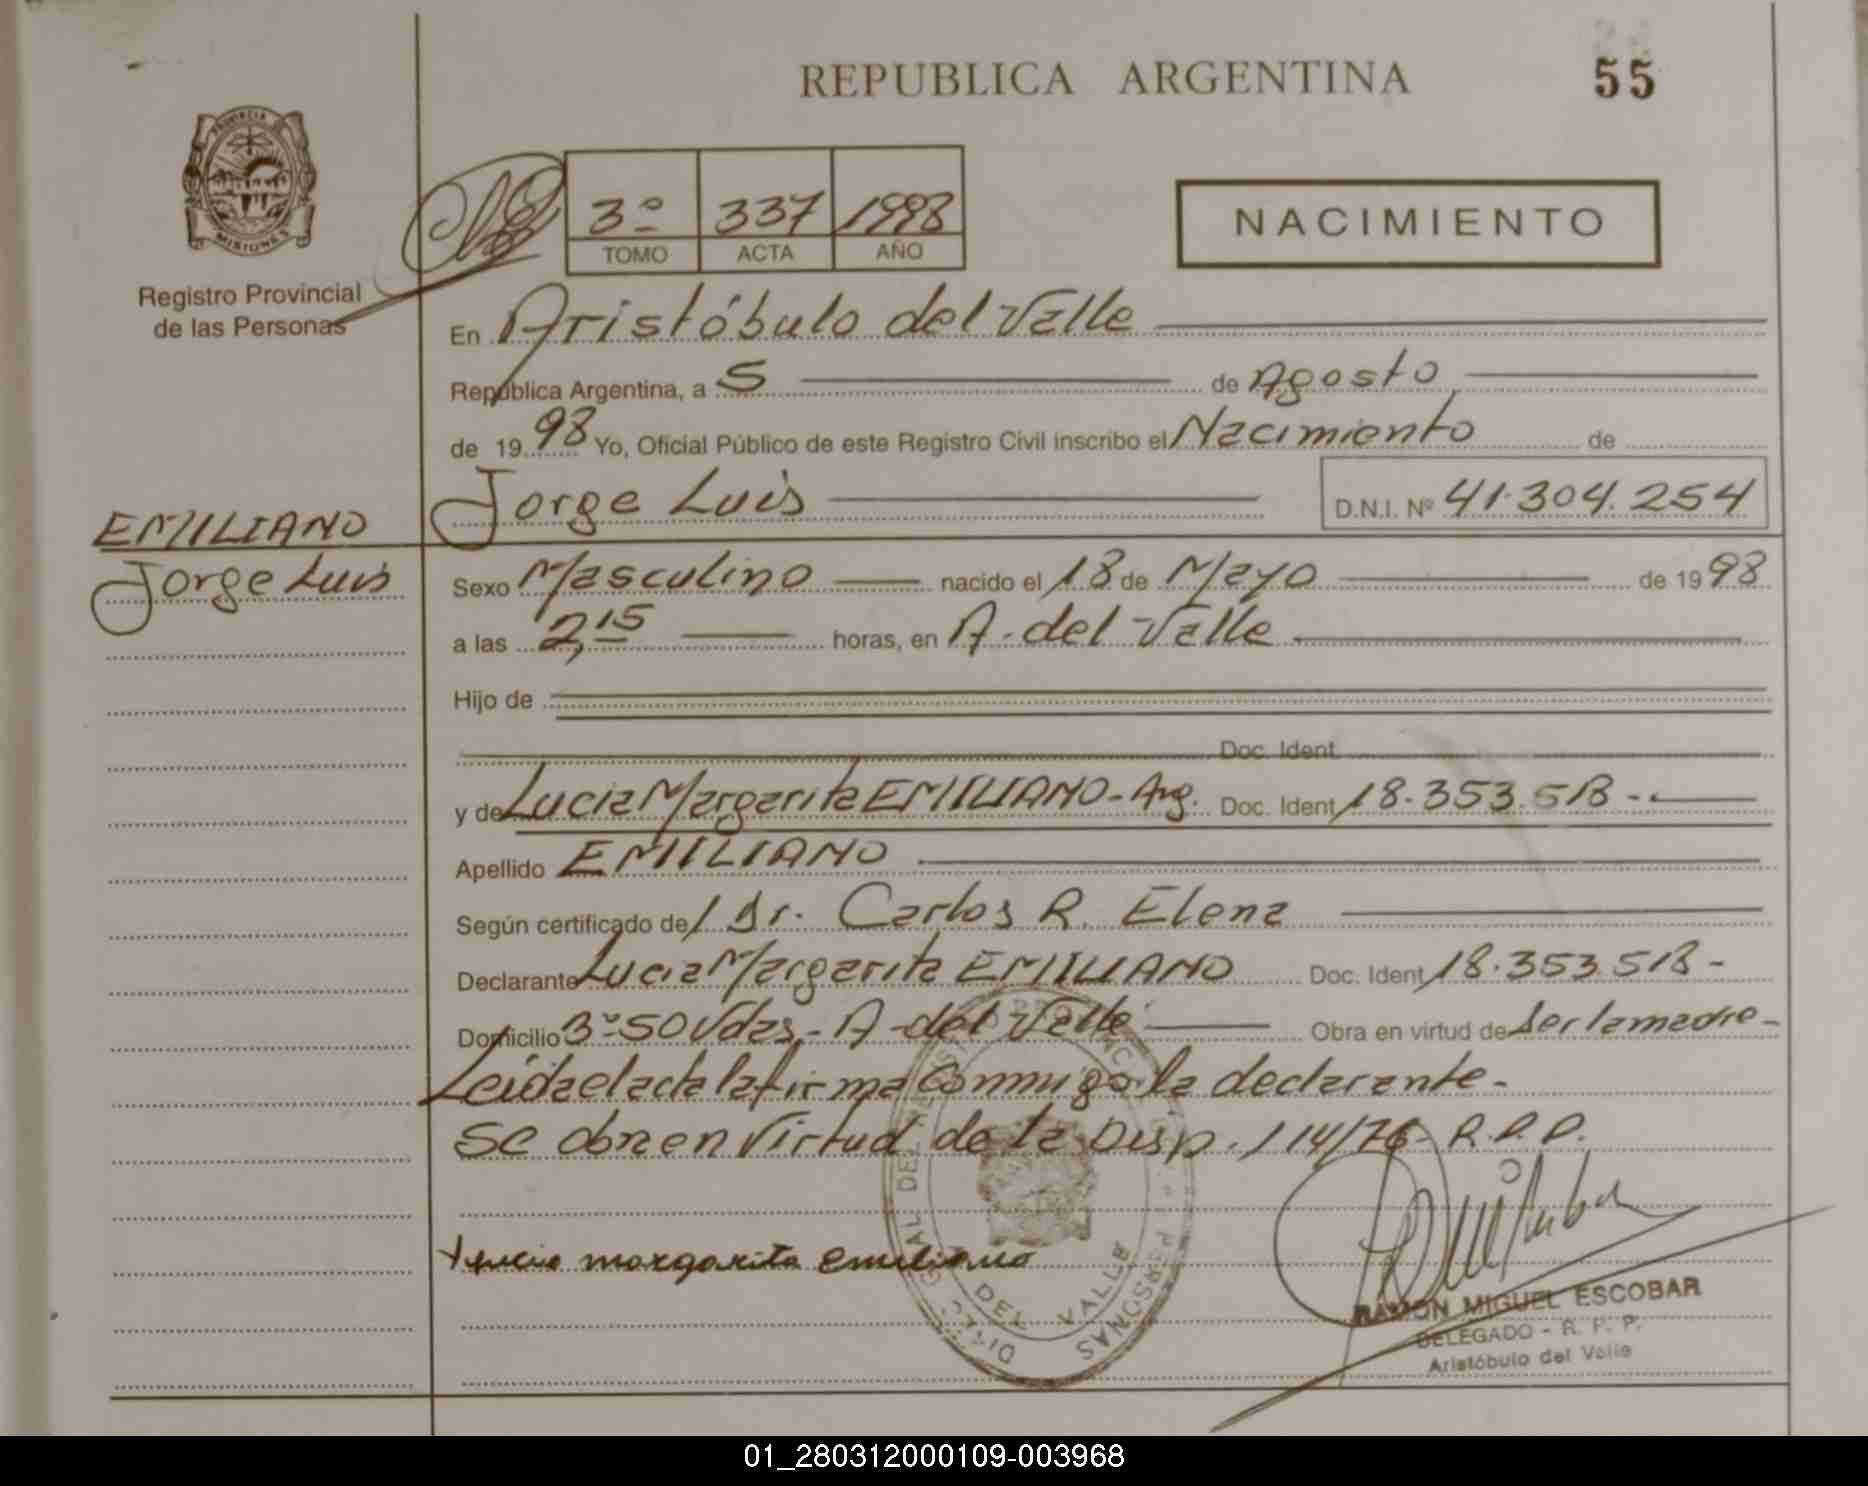 REPUBLICA ARGENTINA
55
PROVINCIA
MISIONES
Registro Provincial
de las Personas
3º 337 1998
TOMO ACTA AÑO
NACIMIENTO
En Aristóbulo del Valle
República Argentina, a 5 de Agosto
de 1998 Yo, Oficial Público de este Registro Civil inscribo el Nacimiento de
Jorge Luis D.N.I. Nº 41.304.254
EMILIANO
Jorge Luis
Sexo Masculino nacido el 18 de Mayo de 1998
a las 2,15 horas, en A. del Valle
Hijo de
Doc. Ident.
y de Lucia Margarita EMILIANO - Arg. Doc. Ident. 18.353.518 -
Apellido EMILIANO
Según certificado de Dr. Carlos R. Elena
Declarante Lucia Margarita EMILIANO Doc. Ident. 18.353.518 -
Domicilio Bº 50 Vdas - A. del Valle Obra en virtud de ser la madre -
Leida el acta la firma conmigo la declarante -
se obra en virtud de la Disp. 114/76 - R.P.P.
Lucia margarita emiliano
DEL VALLE
PERSONAS
RAMON MIGUEL ESCOBAR
DELEGADO - R. P. P.
Aristóbulo del Valle
01_280312000109-003968